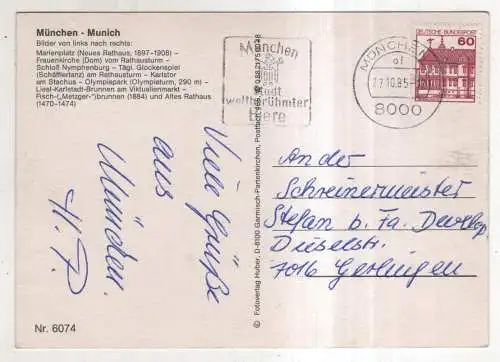 München - Munich
Bilder von links nach rechts:
Marienplatz (Neues Rathaus, 1897-1908) –
Frauenkirche (Dom) vom Rathausturm –
Schloß Nymphenburg – Tägl. Glockenspiel
(Schäfflertanz) am Rathausturm – Karlstor
am Stachus – Olympiapark (Olympiaturm, 290 m) –
Liesl-Karlstadt-Brunnen am Viktualienmarkt –
Fisch-(„Metzger"-)brunnen (1884) und Altes Rathaus
(1470-1474)
München
Stadt
weltberühmter
Biere
MÜNCHEN
8000
DEUTSCHE BUNDESPOST
60
Viele Grüße
aus
München
H. P.
© Fotoverlag Huber, D-8100 Garmisch-Partenkirchen, Postfach
An der
Schreinermeister
Stefan b. Fa.
7016 Gerlingen
Nr. 6074